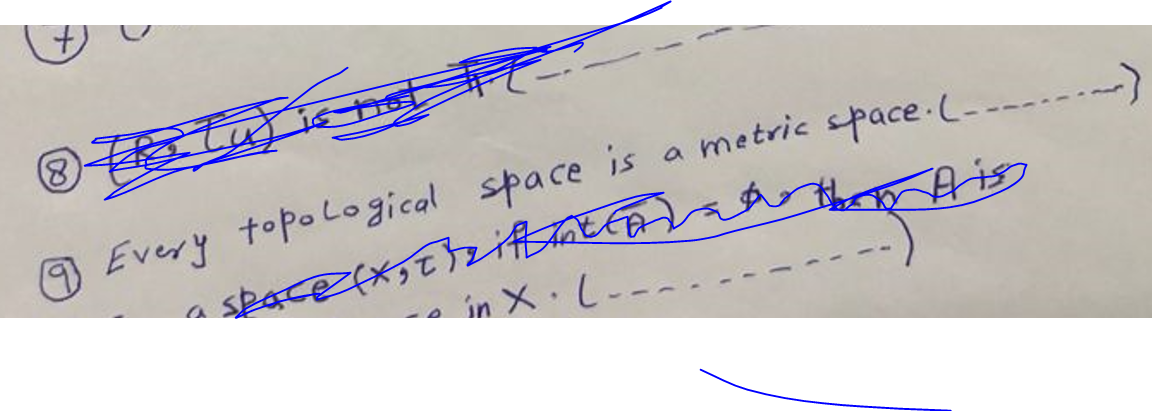 ⑦
⑧ (R, τu) is not T. (---------
⑨ Every topological space is a metric space. (---------)
a space (X, τ), if int(A̅) = φ, then A is
in X. (---------)